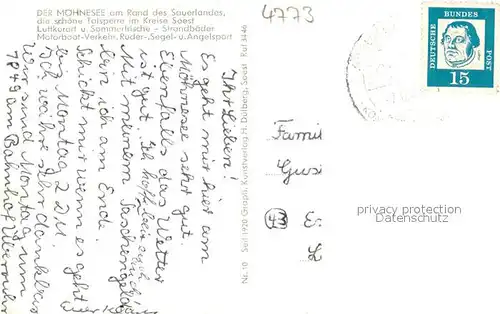 DER MÖHNESEE am Rand des Sauerlandes,
die schöne Talsperre im Kreise Soest
Luftkurort u. Sommerfrische – Strandbäder
Motorboot-Verkehr, Ruder-, Segel- u. Angelsport
4773
DEUTSCHE
BUNDES
POST
15
Ihr Lieben!
Es geht mir hier am
Möhnesee sehr gut
Ebenfalls das Wetter
ist gut. Ich hoffe bei euch auch
Mit meinem Taschengeld
bin ich am Ende
Schickt mir wenn es geht
bis Montag 2 DM
Ich wäre sehr dankbar
Wir sind Montag um
am Bahnhof
Euer Klaus
Nr. 10 Seit 1920 Graph. Kunstverlag H. Dülberg, Soest Ruf 3446
Famil
Gus
43 E
L
privacy protection
Datenschutz